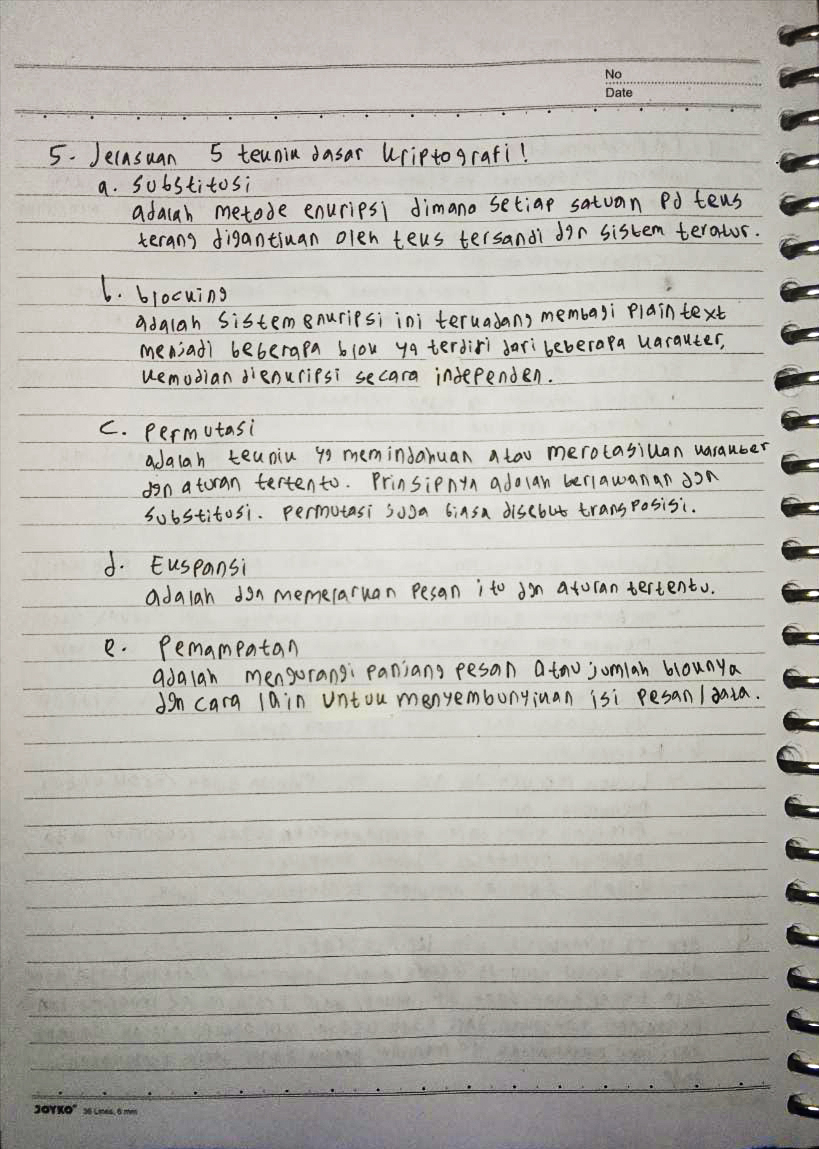 No
Date
5. Jelaskan 5 teknik dasar kriptografi!
a. Substitusi
adalah metode enkripsi dimana setiap satuan pd teks
terang digantikan oleh teks tersandi dgn sistem teratur.
b. blocking
adalah sistem enkripsi ini terkadang membagi plaintext
menjadi beberapa blok yg terdiri dari beberapa karakter,
kemudian dienkripsi secara independen.
c. Permutasi
adalah teknik yg memindahkan atau merotasikan karakter
dgn aturan tertentu. Prinsipnya adalah berlawanan dgn
substitusi. Permutasi juga biasa disebut transposisi.
d. Ekspansi
adalah dgn memelarkan pesan itu dgn aturan tertentu.
e. Pemampatan
adalah mengurangi panjang pesan atau jumlah bloknya
dgn cara lain untuk menyembunyikan isi pesan/data.
JOYKO 36 Lines, 6 mm